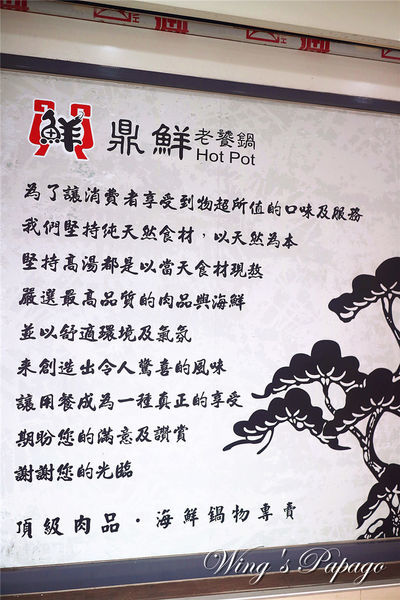 鮮
鼎鮮老饕鍋
Hot Pot
為了讓消費者享受到物超所值的口味及服務
我們堅持純天然食材，以天然為本
堅持高湯都是以當天食材現熬
嚴選最高品質的肉品與海鮮
並以舒適環境及氣氛
來創造出令人驚喜的風味
讓用餐成為一種真正的享受
期盼您的滿意及讚賞
謝謝您的光臨
頂級肉品·海鮮鍋物專賣
Wing's Papago